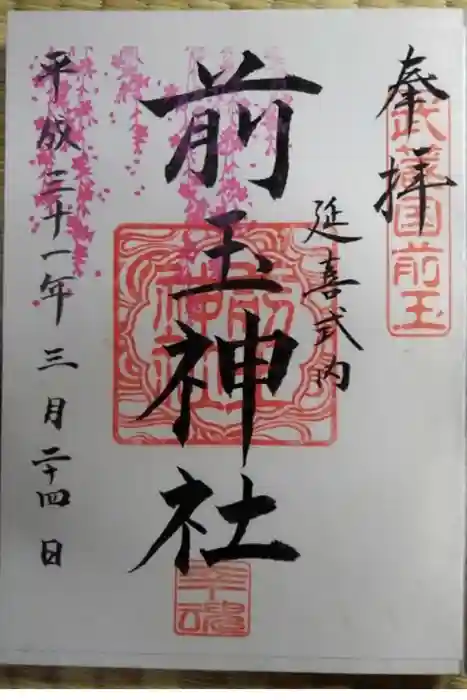 奉拝
武蔵国前玉
延喜式内
前玉神社
幸魂
平成三十一年三月二十四日